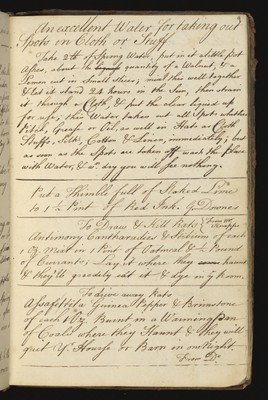 3
An excellent Water for taking out
Spots in Cloth or Stuff
Take 2 lb of Spring Water, put in it a little Pot
Ashes, about the quantity of a Walnut, & a
Lemon cut in Small slices; mix this well together
& let it stand 24 hours in the Sun, then strain
it through a Cloth, & put the clear liquid up
for use; this Water takes out all Spots whether
Pitch, Grease or Oil, as well in Hats as Cloth
Stuffs, Silk, Cotton & Linen, immediately; but
as soon as the Spots are taken off wash the place
with Water, & wn. dry you will see nothing.
Put a Thimble full of Slaked Lime
to 1 ½ Pint of Red Ink. G. Downes
To Draw & Kill Rats;
Antimony Cantharades & Stavium of each
Oz mixt in 1 Pint of Oatmeal & ½ Pound
of Currants; Lay it where they haunt
& they'll greedely eat it & dye in ye room.
To drive away Rats
Assafettida Guinea Pepper & Brimstone
of each 1 Oz. Burnt on a Warmingpan
of Coals where they Haunt & they will
quit Yr. House or Barn in one Night.
From Do.